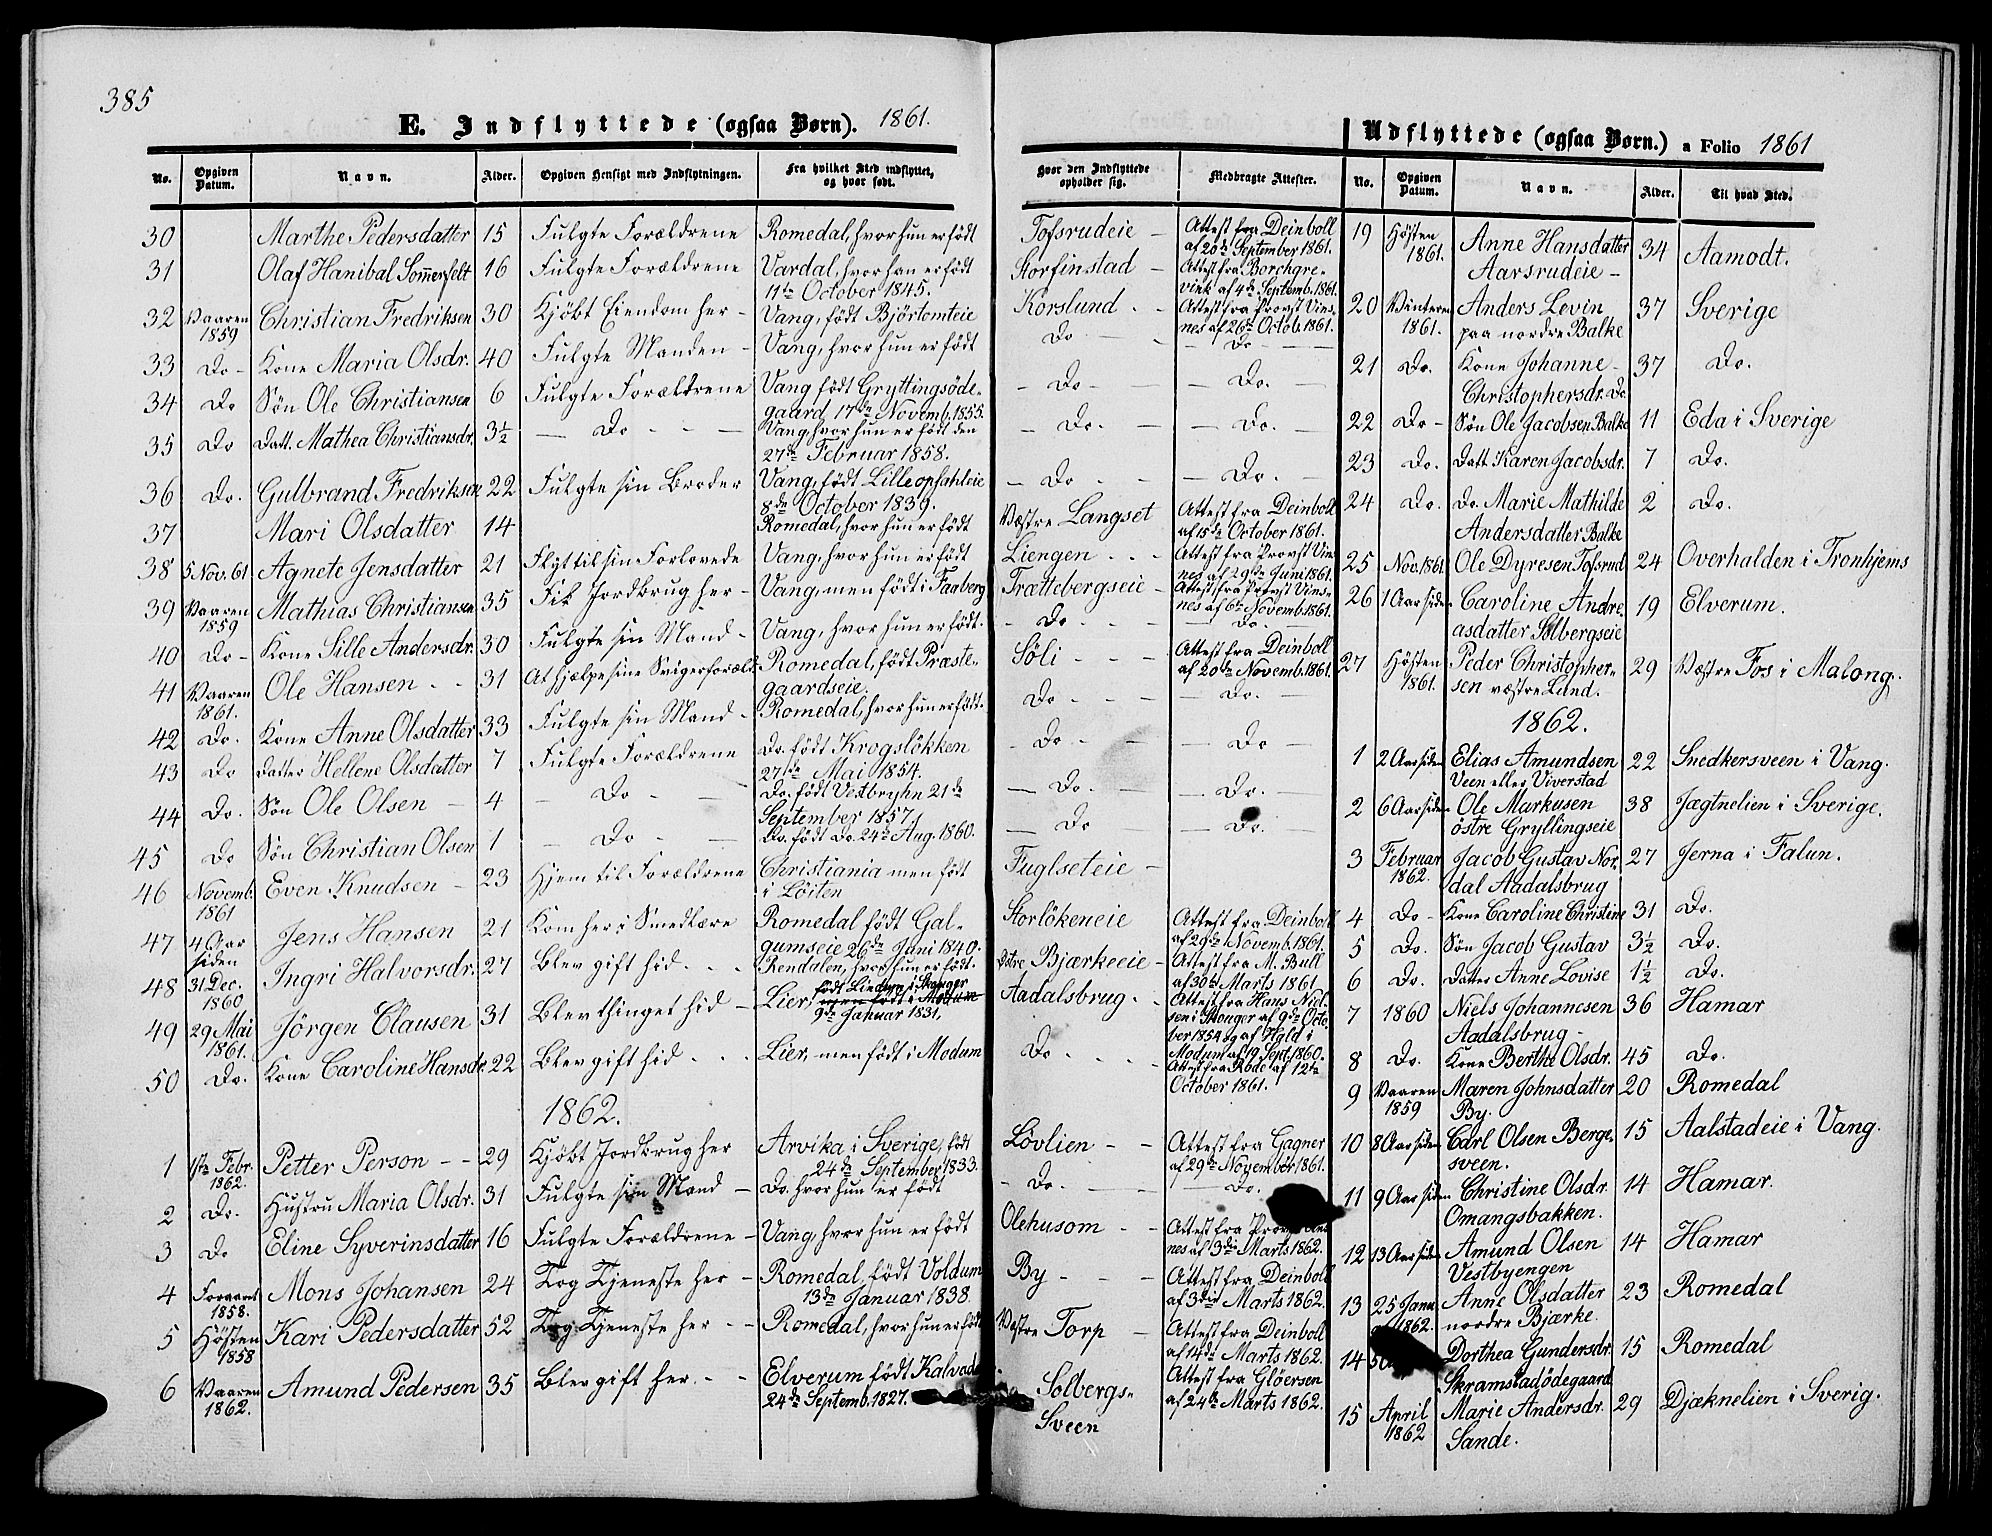 385
E. Indflyttede (ogsaa Børn). 1861.
No. Opgiven Datum. Navn. Alder. Opgiven Hensigt med Indflytningen. Fra hvilket Sted indflyttet, og hvor født.
30 Marthe Pedersdatter 15 Fulgte Forældrene Romedal, hvor hun er født
31 Olaf Hanibal Somerfelt 16 Fulgte Forældrene Vardal, hvor han er født
11te October 1845.
32 Vaaren 1859 Christian Fredriksen 30 Kjöbt Eiendom her - Vang, född Björtomteie
33 Do - Kone Maria Olsdr. 40 Fulgte Manden - Vang, hvor hun er født
34 Do Søn Ole Christiansen 6 Fulgte Forældrene Vang født Gryttingsöde-
gaard, 17de Novemb. 1855.
35 Do Datt. Mathea Christiansdr. 3½ — Do - - Vang, hvor hun er født den
27de Februar 1858.
36 Do. Gulbrand Fredriksen 22 Fulgte sin Broder Vang, født Lilleopsahleie
8de October 1839.
37 Mari Olsdatter 14 Romedal, hvor hun er født
38 5 Nov. 61 Agnete Jensdatter 21 Flyt til sin Forlovede Vang, hvor hun er født
39 Vaaren 1859 Mathias Christiansen 35 Fik Jordbrug her - Vang, men født i Faaberg
40 Do - Kone Sille Andersdr. 30 Fulgte sin Mand - Vang, hvor hun er født.
41 Vaaren 1861. Ole Hansen - - 31 At hjælpe sine Svigerforæld. Romedal, født Præste-
gaardseie.
42 Do. Kone Anne Olsdatter 33 Fulgte sin Mand - Romedal, hvor hun er født.
43 Do Datter Hellene Olsdatter 7 Fulgte Forældrene Do. født Krogslökken
27de Mai 1854.
44 Do. Søn Ole Olsen — 4 - Do - Do. født Vestbryhn 21de
September 1857.
45 Do Søn Christian Olsen 1 — Do — Do. født Do. 24de Aug. 1860.
46 Novemb. 1861 Even Knudsen - 23 Hjem til Forældrene Christiania men født
i Löiten
47 4 Aar siden Jens Hansen 21 Kom her i Smedlære Romedal født Gal-
gumseie 26de Juni 1840.
48 31 Dec. 1860 Ingri Halvorsdr. 27 Blev gift hid - - - Rendalen, hvor hun er født.
49 29 Mai 1861. Jörgen Clausen 31 Blev thinget hid - Lier, men født i Modum
født Lierbyn i Skouger
9de Januar 1831,
50 Do. Kone Caroline Hansdr. 22 Blev gift hid - - - Lier, men født i Modum
1862.
1 1ste Febr. 1862. Petter Person - - 29 Kjöbt Jordbrug her Arvika i Sverige, født
24de September 1833.
2 Do. Hustru Maria Olsdr. 31 Fulgte sin Mand - Do. hvor hun er født
3 Do Eline Syverinsdatter 16 Fulgte Forældrene - Vang, hvor hun er født
4 Foraaret 1858. Mons Johansen 24 Tog Tjeneste her - Romedal, født Voldum
13de Januar 1838
5 Hösten 1858 Kari Pedersdatter 52 Tog Tjeneste her - - Romedal, hvor hun er født
6 Vaaren 1862. Amund Pedersen 35 Blev gift her. - - Elverum født Kalvad
24de Septemb. 1827.
Udflyttede (ogsaa Børn.) a Folio 1861
Hvor den Indflyttede opholder sig. Medbragte Attester.
Tofsrudeie - Attest fra Deinboll
af 20de September 1861.
Storfinstad - Attest fra Borchgre-
vink af 4de Septemb. 1861.
Korslund - - Attest fra Provst Vins-
nes af 26de Octob. 1861.
Do - — Do —
- Do - — Do. —
- Do. - — Do. —
- Do - - — Do. —
Væstre Langset Attest fra Deinboll
af 15de October 1861.
Liengen - - - Attest fra Provst Vins-
nes af 29de Juni 1861.
Trættebergseie - Attest fra Provst Vins-
nes af 6te Novemb. 1861.
- Do - - - — Do. —
Söli - - - Attest fra Deinboll
af 20de Novemb. 1861.
Do - - - — Do. —
- Do - - — Do —
— Do. - — - Do. —
— Do — — Do. —
Fuglseteie -
Storlökeneie Attest fra Deinboll
af 29de Novemb. 1861.
Bjærkeeie - Attest fra M. Bull
af 30te Marts 1861
Aadalsbrug - - Attest fra Hans Niel-
sen i Skouger af 9de Octo-
ber 1854 og af Hald i
Modum af 19 Sept. 1860.
Do - - - - Attest fra Rode af 12te
October 1861.
Lövlien - - Attest fra Gagner
af 29de November 1861.
- Do. - — Do.
Olehusom - - Attest fra Provst
nes af 3die Marts 1862.
By - - - Attest fra Deinboll
af 3die Marts 1862.
Væstre Torp - Attest fra Deinboll
af 14de Marts 1862.
Solbergs-
Sveen Attest fra Glöersen
af 24de Marts 1862.
No. Opgiven Datum. Navn. Alder. Til hvad Sted.
19 Hösten 1861. Anne Hansdatter
Aarsrudeie - 34 Aamodt.
20 Vinteren 1861. Anders Levin
paa nordre Balke 37 Sverige
21 Do. Kone Johanne -
Christophersdr. Do. 37 Do.
22 Do - Søn Ole Jacobsen Balke 11 Eda i Sverige
23 Do. Datt Karen Jacobsdr. 7 Do.
24 Do. Do. Marie Mathilde
Andersdatter Balke 2 Do.
25 Nov. 1861 Ole Dyresen Tofsrud 24 Overhalden i Tronhjems
26 1 Aar siden Caroline Andre-
asdatter Solbergseie 19 Elverum.
27 Hösten 1861. Peder Christopher-
sen væstre Lund. 29 Væstre Fos i Malong.
1862.
1 2 Aar siden Elias Amundsen
Veen eller Viverstad 22 Snedkersveen i Vang.
2 6 Aar siden Ole Markusen
östre Gryllingseie 38 Jægtnelien i Sverige.
3 Februar 1862. Jacob Gustav Nor-
dal Aadalsbrug 27 Jerna i Falun.
4 Do - Kone Caroline Christine 31 Do.
5 Do. Søn Jacob Gustav 3½ Do.
6 Do. Datter Anne Lovise 1½ Do.
7 1860 Niels Johannesen
Aadalsbrug - 36 Hamar
8 Do. Kone Berthe Olsdr. 45 Do.
9 Vaaren 1859 Maren Johnsdatter
By. 20 Romedal
10 8 Aar siden Carl Olsen Berge-
sveen. 15 Aalstadeie i Vang.
11 9 Aar siden Christine Olsdr.
Omangsbakken. 14 Hamar.
12 13 Aar siden Amund Olsen
Vestbyengen 14 Hamar
13 25 Janu. 1862. Anne Olsdatter
nordre Bjærke. 23 Romedal
14 Dorthea Gundersdr.
Skramstadödegaard 15 Romedal
15 April 1862 Marie Andersdr.
Sande. 29 Djæknelien i Sverig.